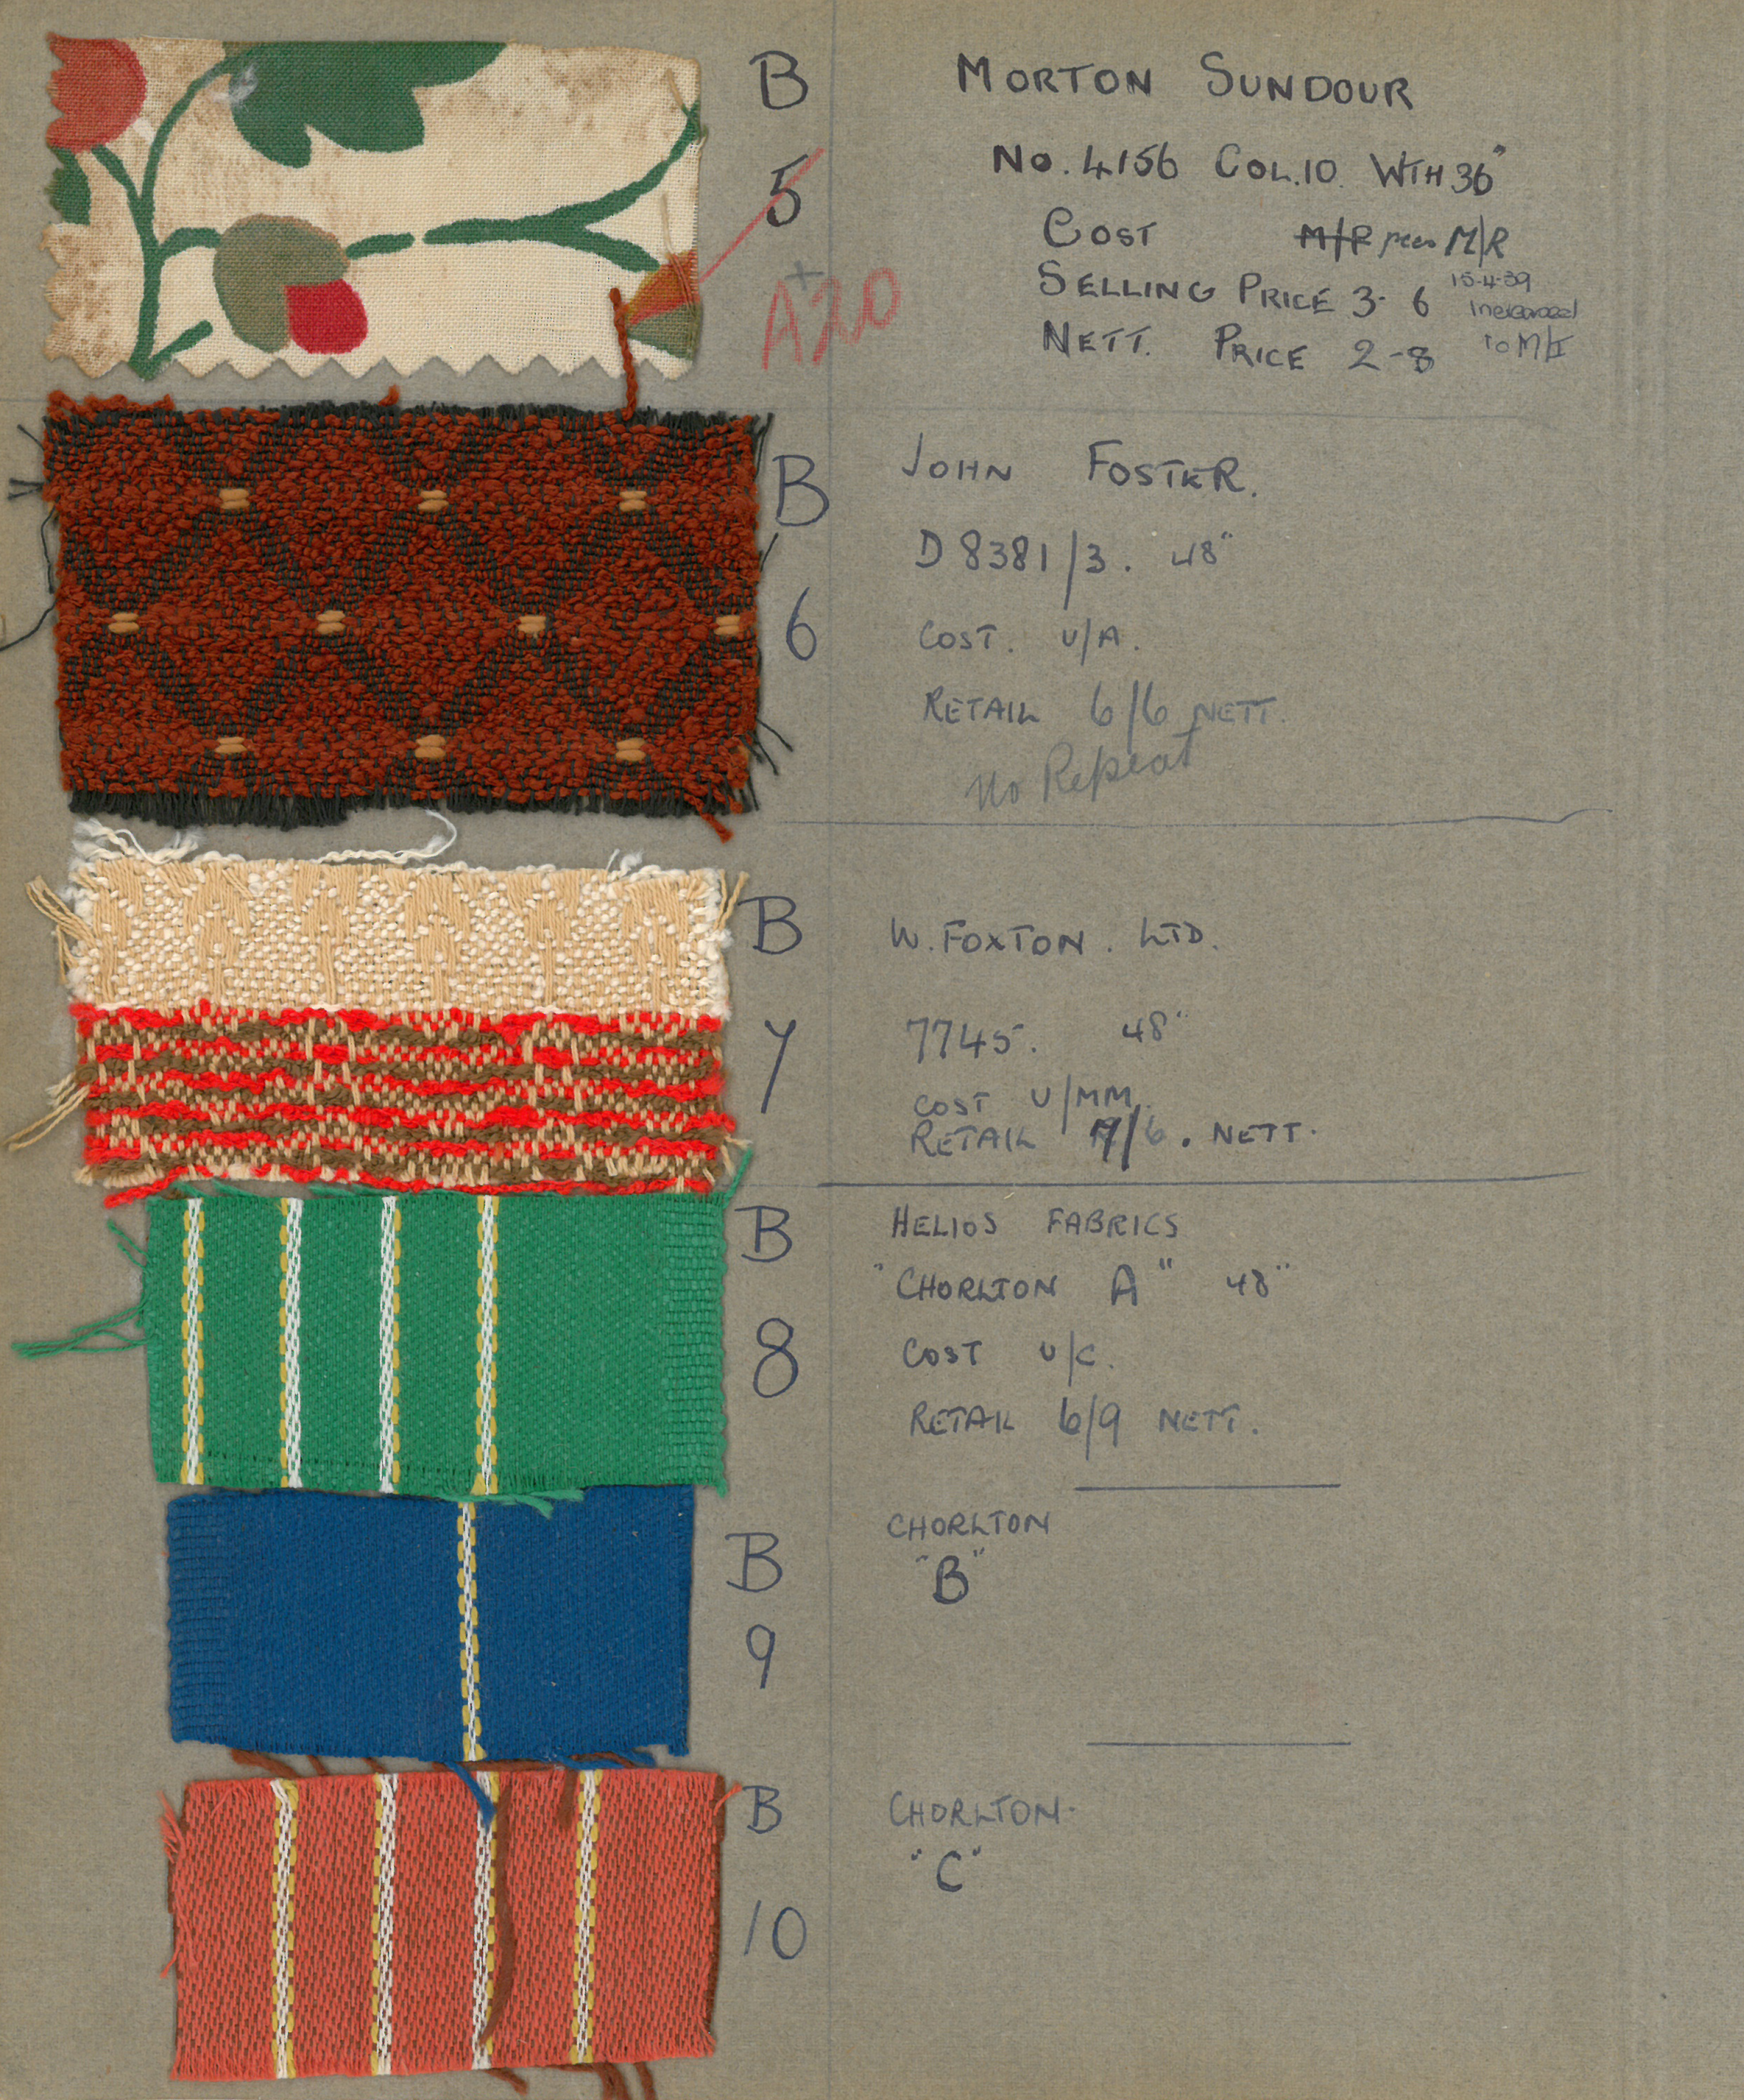 B MORTON SUNDOUR
5 No. 4156 COL.10. WTH 36"
COST M/P M/R
A20
SELLING PRICE 3-6 15-4-39
Increased
NETT. PRICE 2-8 to M/I
B JOHN FOSTER.
D 8381/3. 48"
6 COST. U/A.
RETAIL 6/6 NETT.
No Repeat
B W. FOXTON. LTD.
7 7745. 48"
COST U/MM.
RETAIL 7/6. NETT.
B HELIOS FABRICS
"CHORLTON A" 48"
8 COST U/C.
RETAIL 6/9 NETT.
B CHORLTON
"B"
9
B CHORLTON.
"C"
10